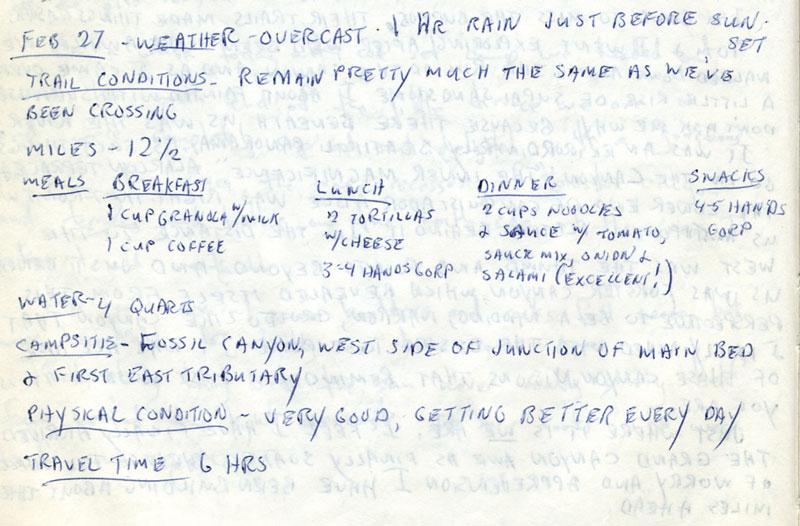 FEB 27 - WEATHER - OVERCAST. 1 HR RAIN JUST BEFORE SUN-
SET
TRAIL CONDITIONS - REMAIN PRETTY MUCH THE SAME AS WE'VE
BEEN CROSSING
MILES - 12 1/2
MEALS BREAKFAST LUNCH DINNER SNACKS
1 CUP GRANOLA W/MILK 2 TORTILLAS 2 CUPS NOODLES 4-5 HANDS
1 CUP COFFEE W/CHEESE & SAUCE W/ TOMATO, GORP
3-4 HANDS GORP SAUCE MIX, ONION &
SALAMI (EXCELLENT!)
WATER - 4 QUARTS
CAMPSITE - FOSSIL CANYON, WEST SIDE OF JUNCTION OF MAIN BED
& FIRST EAST TRIBUTARY
PHYSICAL CONDITION - VERY GOOD, GETTING BETTER EVERY DAY
TRAVEL TIME 6 HRS